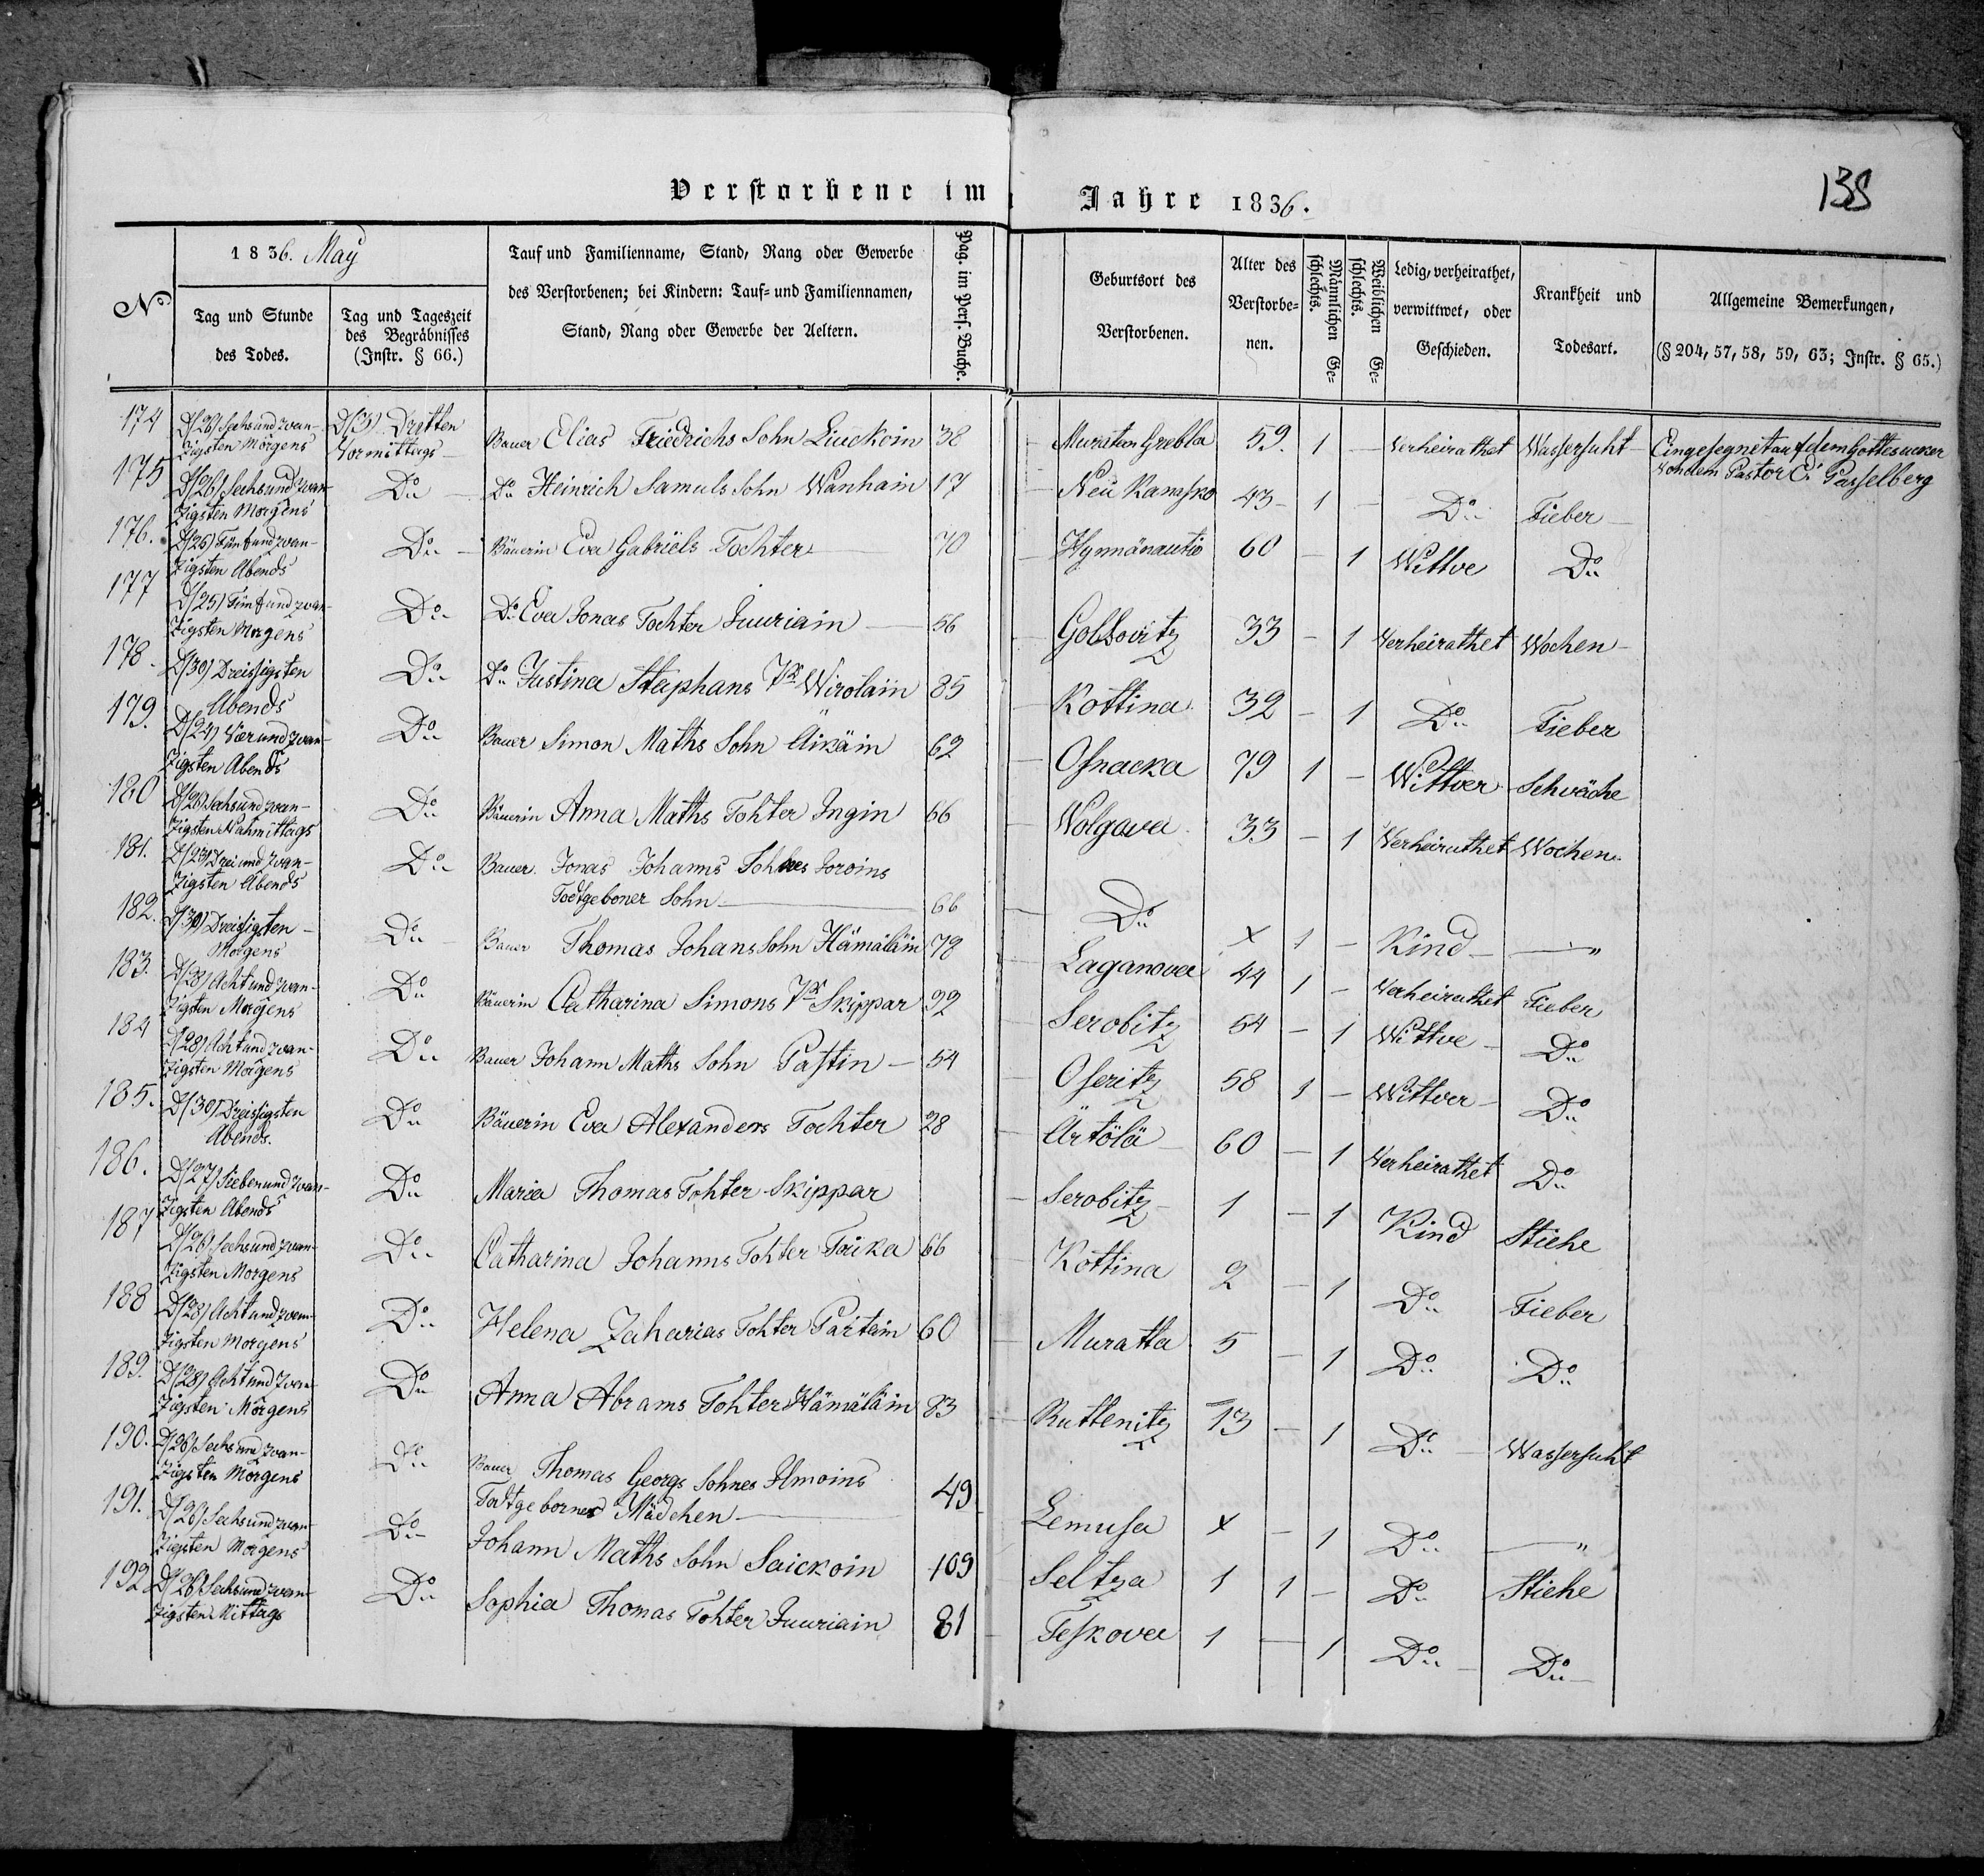 Verstorbene im Jahre 1836.
138
No
1836. May
Tag und Stunde des Todes.
Tag und Tageszeit des Begräbnisses (Instr. § 66.)
Tauf und Familienname, Stand, Rang oder Gewerbe
des Verstorbenen; bei Kindern: Tauf- und Familiennamen,
Stand, Rang oder Gewerbe der Aeltern.
Pag. im Pers. Buche.
Geburtsort des Verstorbenen.
Alter des Verstorbenen.
Männlichen Geschlechts.
Weiblichen Geschlechts.
Ledig, verheirathet, verwittwet, oder Geschieden.
Krankheit und Todesart.
Allgemeine Bemerkungen,
(§ 204, 57, 58, 59, 63; Instr. § 65.)
174 D/26/ Sechsundzwan-
zigsten Morgens
D/3/ Dritten
Vormittags
Bauer Elias Friedrichs Sohn Liuckoin 38 Muratan Grebla 59. 1 — Verheirathet Wassersuht
Eingesegnet auf dem Gottesacker
Von dem Pastor C.
175 D/26/ Sechsundzwan-
zigsten Morgens
Do Do Heinrich Samuls Sohn Wanhain 17 Neu Kamesko 43 1 — Do Fieber
176. D/25/ Fünfundzwan-
zigsten Abends
Do Bäuerin Eva Gabriels Tochter 70 Hynnänautio 60 — 1 Wittve Do
177 D/25/ Fünfundzwan-
zigsten Morgens
Do Do Eva Jonas Tochter Juuriain 56 Golkovitz 33 — 1 Verheirathet Wochen
178. D/30/ Dreissigsten
Abends
Do Do Justina Staphans Tr Wirolain 85 Kottina 32 — 1 Do Fieber
179. D/24/ Vierundzwan-
zigsten Abends
Do Bauer Simon Maths Sohn Äikäin 62 Osnacka 79 1 — Wittver Schväche
180 D/26/ Sechsundzwan-
zigsten Nahmittags
Do Bäuerin Anna Maths Tohter Ingin 66 Wolgova 33 — 1 Verheirathet Wochen
181. D/23/ Dreiundzwan-
zigsten Abends
Do Bauer Jonas Johanns Sohnes Soroins
Todtgeboner Sohn 66 Do X 1 — Kind — "
182. D/30/ Dreisigsten
Morgens
Do Bauer Thomas Johans Sohn Hämäläin 78 Laganova 44 1 — Verheirathet Fieber
183. D/28/ Achtundzwan-
zigsten Morgens
Do Bäuerin Catharina Simons Tr Skippar 92 Serobitz 54 — 1 Wittve Do
184 D/28/ Achtundzwan-
zigsten Morgens
Do Bauer Johann Maths Sohn Pastin 54 Oseritz 58 1 — Wittver Do
185. D/30/ Dreissigsten
Abends.
Do Bäuerin Eva Alexanders Tochter 28 Ärtölä 60 — 1 Verheirathet Do
186. D/27/ Siebenundzwan-
zigsten Abends
Do Maria Thomas Tohter Skippar Serobitz 1 — 1 Kind Stiche
187 D/26/ Sechsundzwan-
zigsten Morgens
Do Catharina Johanns Tohter Toicka 66 Kottina 2 — 1 Do Fieber
188 D/28/ Achtundzwan-
zigsten Morgens
Do Helena Zaharias Tohter Partain 60 Muratta 5 — 1 Do Do
189. D/28/ Achtundzwan-
zigsten Morgens
Do Anna Abrams Tohter Hämäläin 83 Ruttenitz 13 — 1 Do Wassersuht
190. D/26/ Sechsundzwan-
zigsten Morgens
Do Bauer Thomas Georgs Sohnes Ilmoins
Todtgebornes Mädchen 49 Lemusa X — 1 Do — "
191. D/26/ Sechsundzwan-
zigsten Morgens
Do Johann Maths Sohn Saickoin 109 Seltza 1 1 — Do Stiche
192 D/26/ Sechsundzwan-
zigsten Mittags
Do Sophia Thomas Tohter Juuriain 81 Teskova 1 — 1 Do Do